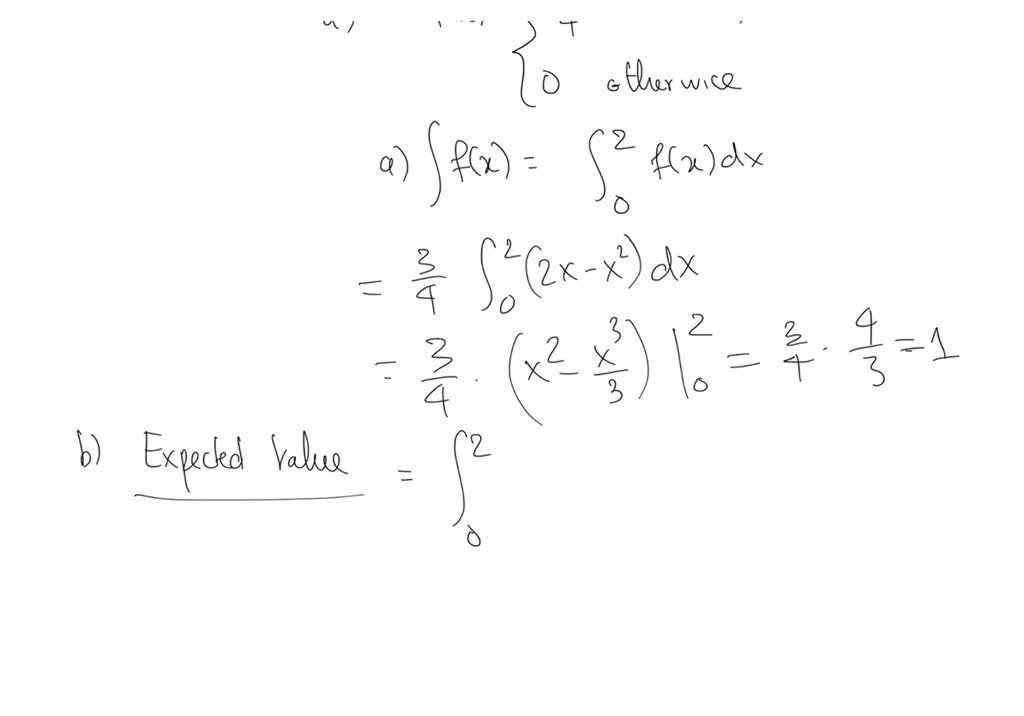 0 otherwice
a) ∫ f(x) = ∫₀² f(x) dx
= 3/4 ∫₀² (2x - x²) dx
= 3/4 · (x² - x³/3) |₀² = 3/4 · 4/3 = 1
b) Expected Value = ∫₀²